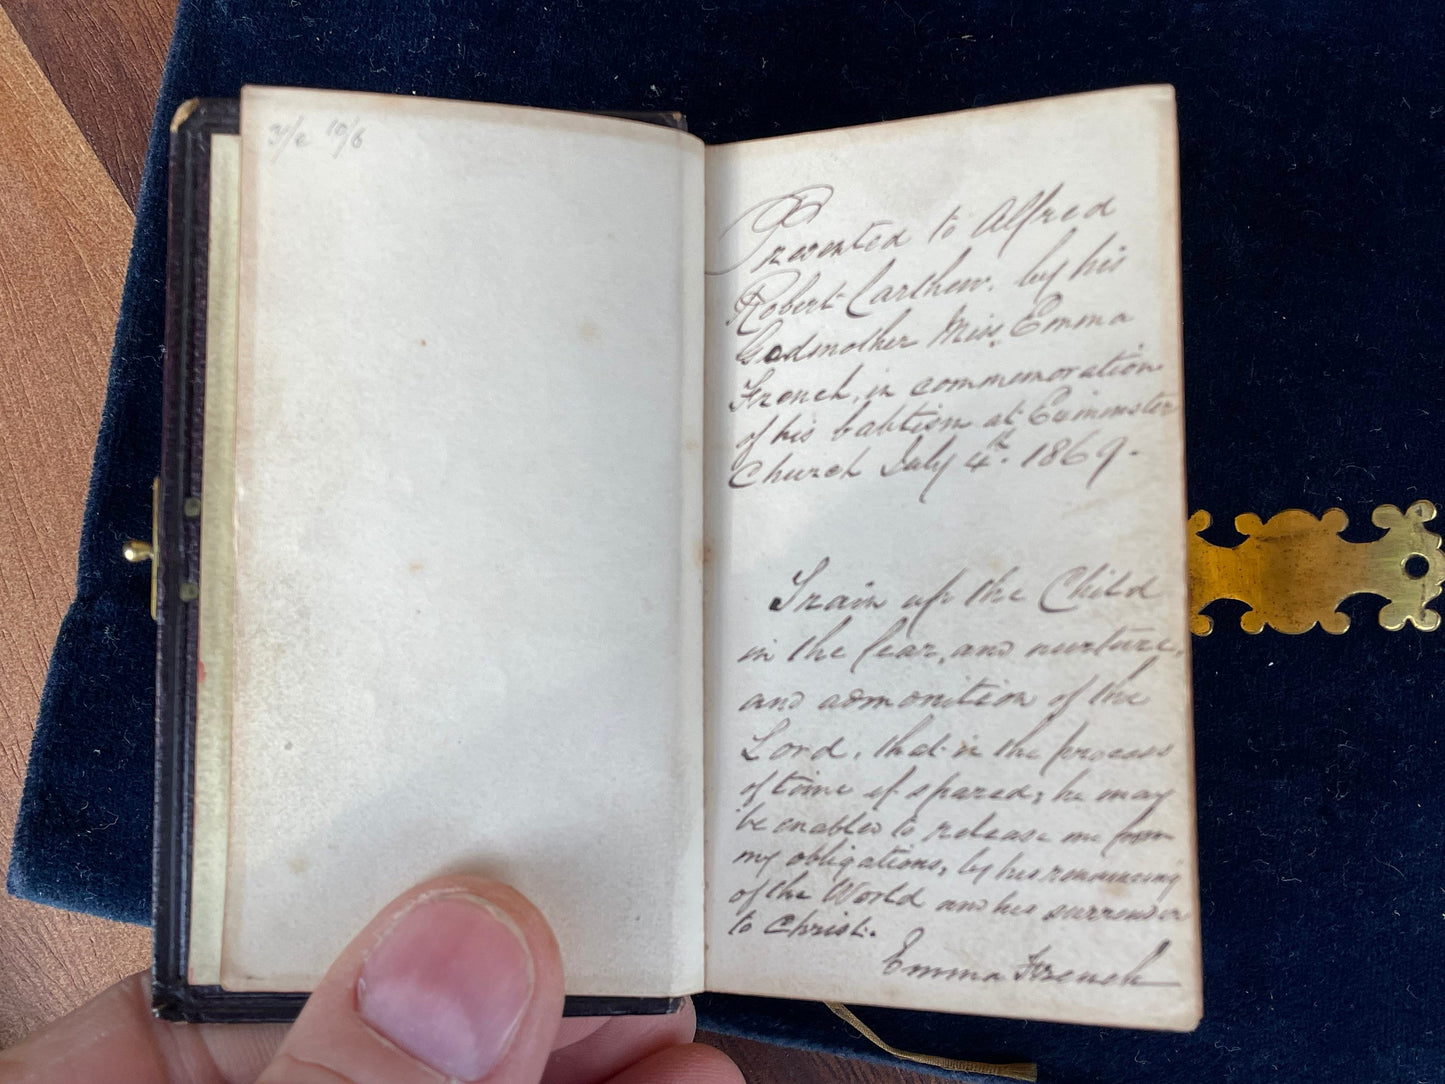 10/6
Presented to Alfred
Robert Carthew, by his
Godmother Miss Emma
French, in commemoration
of his babtism at Euminster
Church July 4th. 1869.
Train up the Child
in the fear, and nurture,
and admonition of the
Lord, that in the process
of time if spared, he may
be enabled to release me from
my obligations, by his renouncing
of the World and his surrender
to Christ.
Emma French